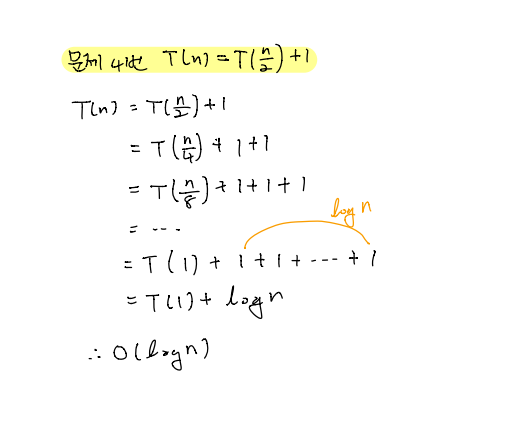 문제 4번 T(n) = T(n/2) + 1
T(n) = T(n/2) + 1
= T(n/4) + 1 + 1
= T(n/8) + 1 + 1 + 1
log n
= ...
= T(1) + 1 + 1 + ... + 1
= T(1) + log n
∴ O(log n)